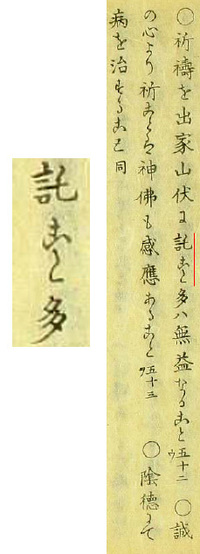 ○祈禱を出家山伏に託こと多ハ無益なること 五十二ウ ○誠
の心より祈 神佛も感應あること 五十三 ○陰徳にて
病を治すること 同
託こと多